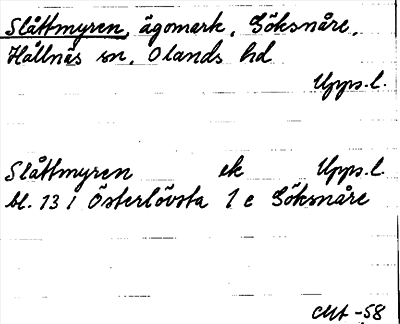 Slåttmyren, ägomark, Göksnåre,
Hållnäs sn, Olands hd
Upps.l.
Slåttmyren ek Upps.l.
bl. 131 Österlövsta 1 e Göksnåre
-58